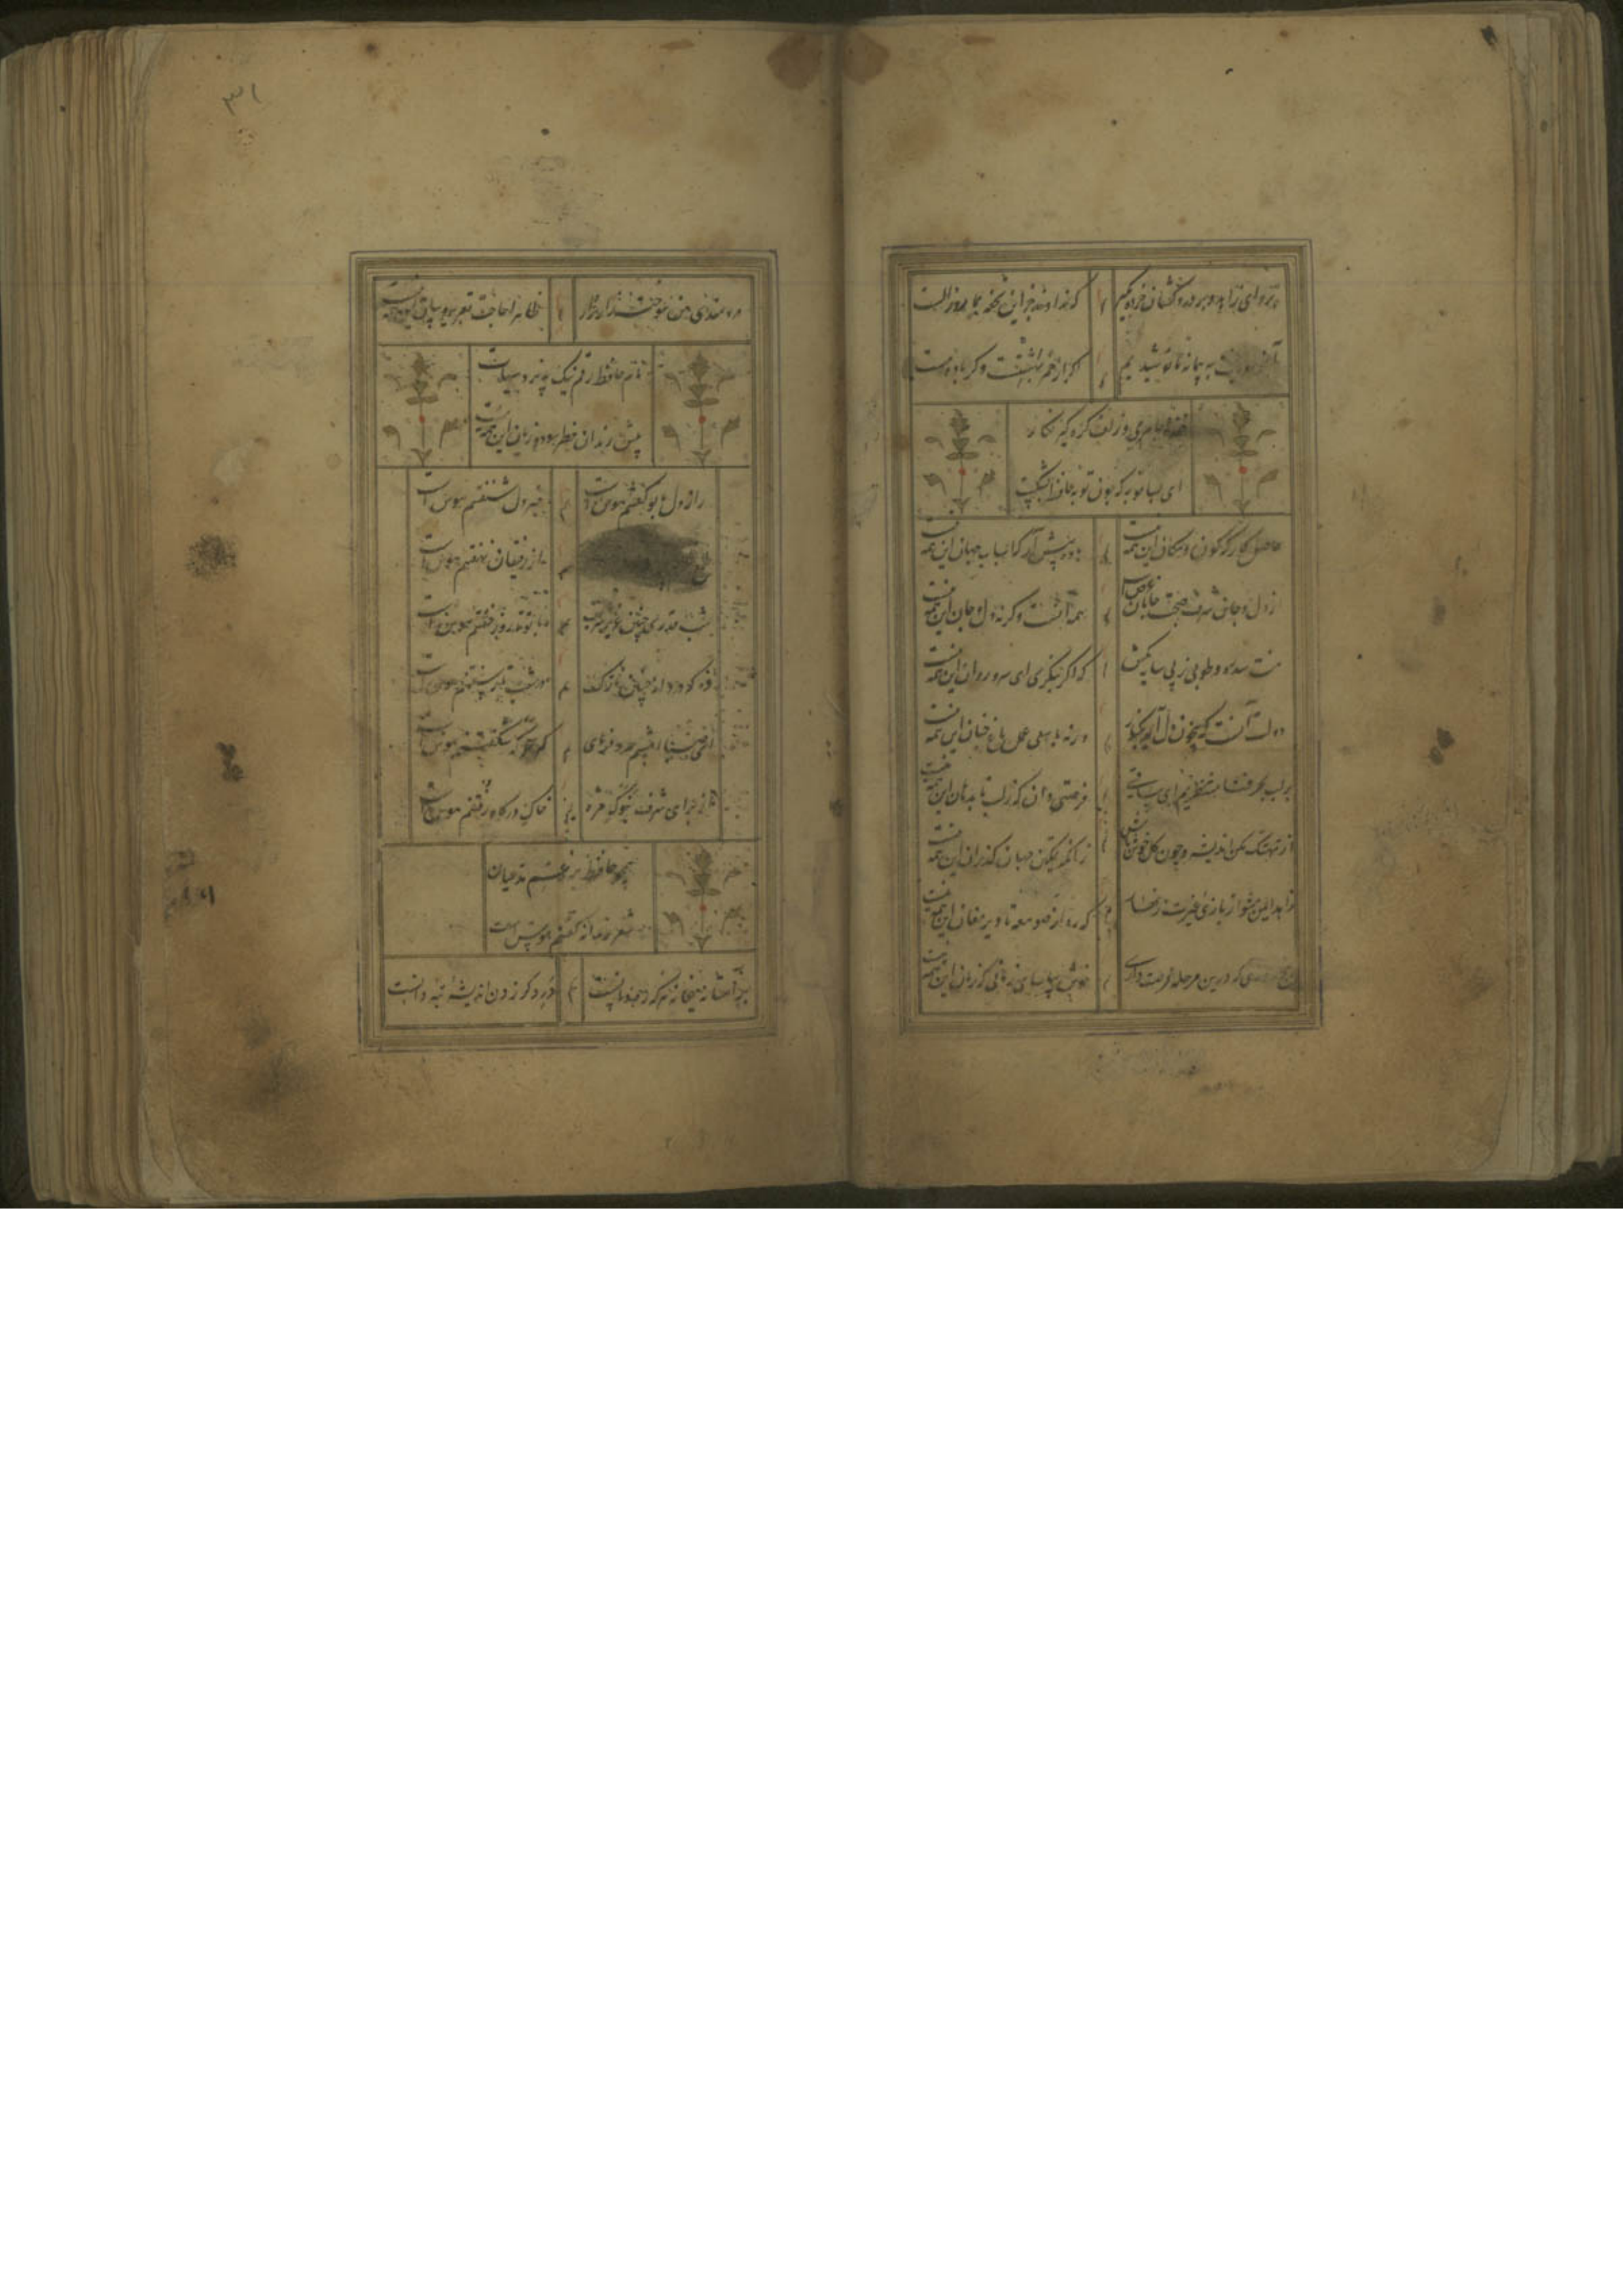 برو ای زاهد و بر دردکشان خرده مگیر
که ندادند جز این تحفه بما روز الست
به پیمانه ما نوشیدیم
اگر از خمر بهشتست و گر باده مست
خنده جام می و زلف گره گیر نکار
ای بسا توبه که چون توبه حافظ بشکست
حاصل کارگه کون و مکان این همه نیست
باده پیش آر که اسباب جهان این همه نیست
از دل و جان شرف صحبت جانان غرض است
همه آنست و کرنه دل و جان این همه نیست
منت سدره و طوبی ز پی سایه مکش
که اگر بنگری ای سرو روان این همه نیست
دولت آنست که بیخون دل آید بکنار
ورنه با سعی عمل باغ جنان این همه نیست
بر لب بحر فنا منتظریم ای ساقی
فرصتی دان که ز لب تا بدهان این همه نیست
از تهتک مکن اندیشه و چون کل خوش باش
زانکه تمکین جهان گذران این همه نیست
زاهد ایمن مشو از بازی غیرت زنهار
که ره از صومعه تا دیر مغان این همه نیست
پنج روزی که درین مرحله فرصت داری
خوش بیاسای زمانی که زمان این همه نیست
۳۱
دردمندی من سوخته زار نزار
ظاهرا حاجت تقریر و بیان این همه نیست
نام حافظ رقم نیک پذیرفت
پیش رندان رقم سود و زیان این همه نیست
راز دل با تو گفتنم هوس است
خبر دل شنفتنم هوس است
از رقیبان نهفتنم هوس است
شب قدری چنین عزیز و شریف
با تو تا روز خفتنم هوس است
وه که دردانه چنین نازک
در شب تار سفتنم هوس است
ای صبا امشبم مدد فرمای
که سحرگه شکفتنم هوس است
از برای شرف بنوک مژه
خاک درگاه رفتنم هوس است
همچو حافظ برغم مدعیان
شعر رندانه گفتنم هوس است
بر آستانه میخانه هر که
در دگر زدن اندیشه تبه دانست